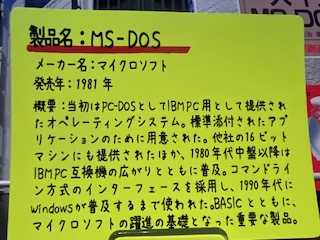 製品名：MS-DOS
メーカー名：マイクロソフト
発売年：1981年
概要：当初はPC-DOSとしてIBM PC用として提供され
たオペレーティングシステム。標準添付されたアプ
リケーションのために用意された。他社の16ビット
マシンにも提供されたほか、1980年代中盤以降は
IBM PC互換機の広がりとともに普及。コマンドライ
ン方式のインターフェースを採用し、1990年代に
Windowsが普及するまで使われた。BASICとともに、
マイクロソフトの躍進の基礎となった重要な製品。